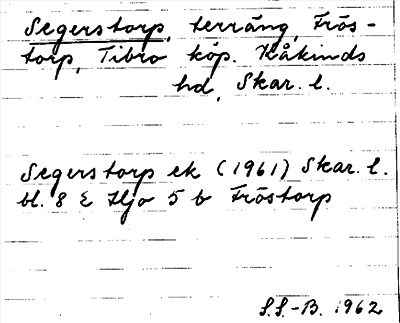 Segerstorp, terräng, Frös-
torp, Tibro köp. Kåkinds
hd, Skar. l.
Segerstorp ek (1961) Skar. l.
bl. 8 E Hjo 5 b Fröstorp
S.S.-B. 1962